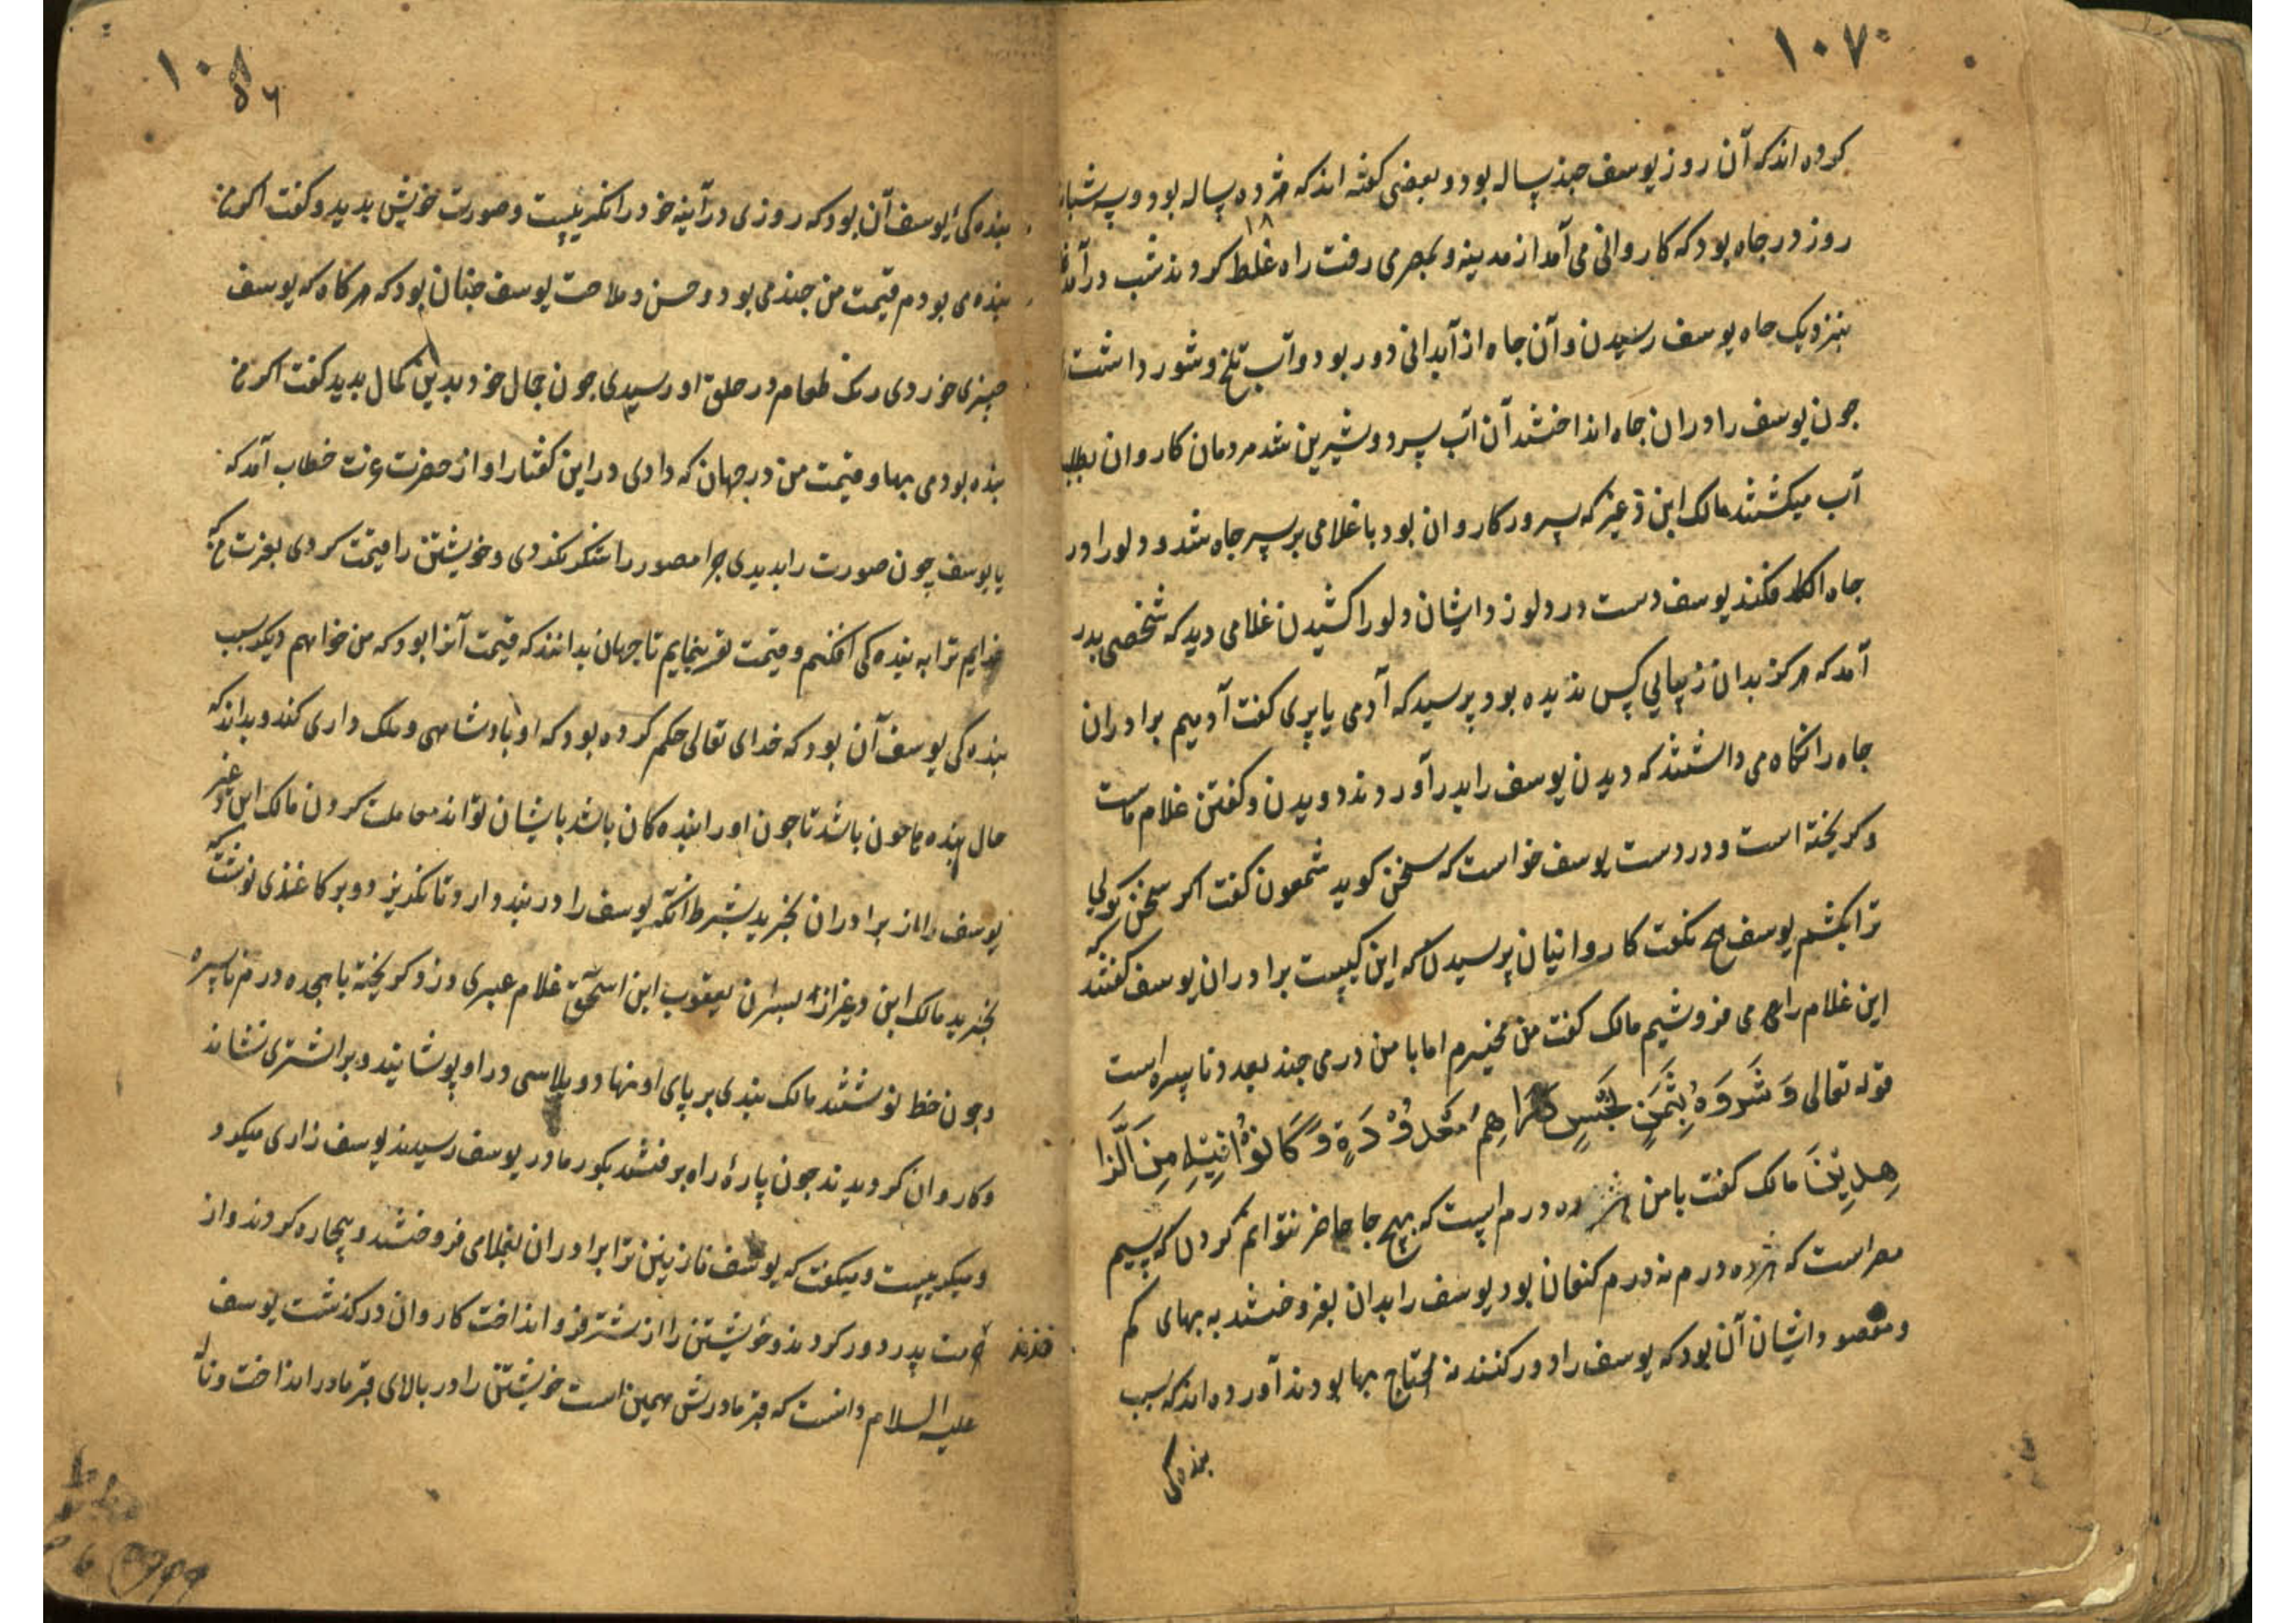 ۱۰۷
کرده اند که آن روز یوسف چند ساله بود و بعضی گفته اند که هژده ساله بود و سه شبان
روز در چاه بود که کاروانی می آمد از مدینه و بمصر می رفت راه غلط کردند شب در آمد
۱۸
بنزدیک چاه یوسف رسیدن و آن چاه از آبدانی دور بود و آب تلخ و شور داشت
جون یوسف را در ان جاه انداختند آن آب سرد و شیرین شد مردمان کاروان بطلب
آب میکشتند مالک ابن ذعیر که سرور کاروان بود با غلامی بر سر جاه شد و دلو را در
جاه فکند یوسف دست در دلو زد ایشان دلو را کشیدن غلامی دید که شخصی بدر
آمد که هرکز بدان زیبایی کس ندیده بود پرسید که آدمی یا پری کفت آدمیم برادران
جاه را نکاه می داشتند که دیدن یوسف را بدر آوردند دویدن و کفتن غلام ماست
و کریخته است و در دست یوسف خواست که سخن کوید شمعون کفت اکر سخن کولی
ترا بکشم یوسف هیچ نکفت کاروانیان پرسیدن که این کیست برادران یوسف کفتند که
این غلام را می فروشیم مالک کفت من میخرم اما با من درمی جند بعدد ناسره است
قوله تعالی وَ شَرَوْهُ بِثَمَنٍ بَخْسٍ دَرَاهِمَ مَعْدُوْدَةٍ وَ کَانُوْا فِیْهِ مِنَ الَّزَا
هِدِیْنَ مالک کفت با من هژده درم است که هیچ جا حاضر نتوانم کردن که سیم
مصر است که هژده درم نه درم کنعان بود یوسف را بدان بفروختند به بهای کم
و مقصود ایشان آن بود که یوسف را دور کنند نه محتاج بها بودند آورده اند که سبب
بنده کی
۱۰۸
۵۶
بنده کئ یوسف آن بود که روزی در آینه خود را نکریست و صورت خویش بدید و کفت اکر من
بنده می بودم قیمت من جند می بود و حسن و ملاحت یوسف جنان بود که هر کاه که یوسف
چیزی خوردی رنک طعام در حلق او رسیدی جون جمال خود بدین کمال بدید کفت اکر من
بنده بودمی بها و قیمت من در جهان که دادی در این کفتار او از حضرت عزت خطاب آمد که
یا یوسف چون صورت را بدیدی جرا مصور را شکر نکردی و خویشتن را قیمت کردی بعزت من که
خدایم ترا به بنده کی افکنم و قیمت تو بنمایم تا جهان بدانند که قیمت آنرا بود که من خواهم دیکر سبب
بنده کی یوسف آن بود که خدای تعالی حکم کرده بود که او بادشاهی و ملک داری کند و بداند که
حال بنده جون باشد تا جون او را بنده کان باشد با ایشان تواند معاملت کردن مالک ابن ذعیر
یوسف را از برادران بخرید بشرط آنکه یوسف را در بند دارد تا نکریزد و بر کاغذی نوشت که
بخرید مالک ابن دعیر از بسران یعقوب ابن اسحق غلام عبری دزد کریخته با هجده درم ناسره
و جون خط نوشتند مالک بندی بر پای او نهاد و پلاسی در او پوشانید و بر اشتری نشاند
و کاروان کردیدند جون پارهٔ راه برفتند بکور مادر یوسف رسیدند یوسف زاری میکرد
و میکریست و میکفت که یوسف نازنین ترا برادران بغلامی فروختند و بیچاره کردند و از
خدمت پدر دور کردند و خویشتن را از شتر فرو انداخت کاروان در کذشت یوسف
علیه السلام دانست که قبر مادرش همین است خویشتن را در بالای قبر مادر انداخت و ناله